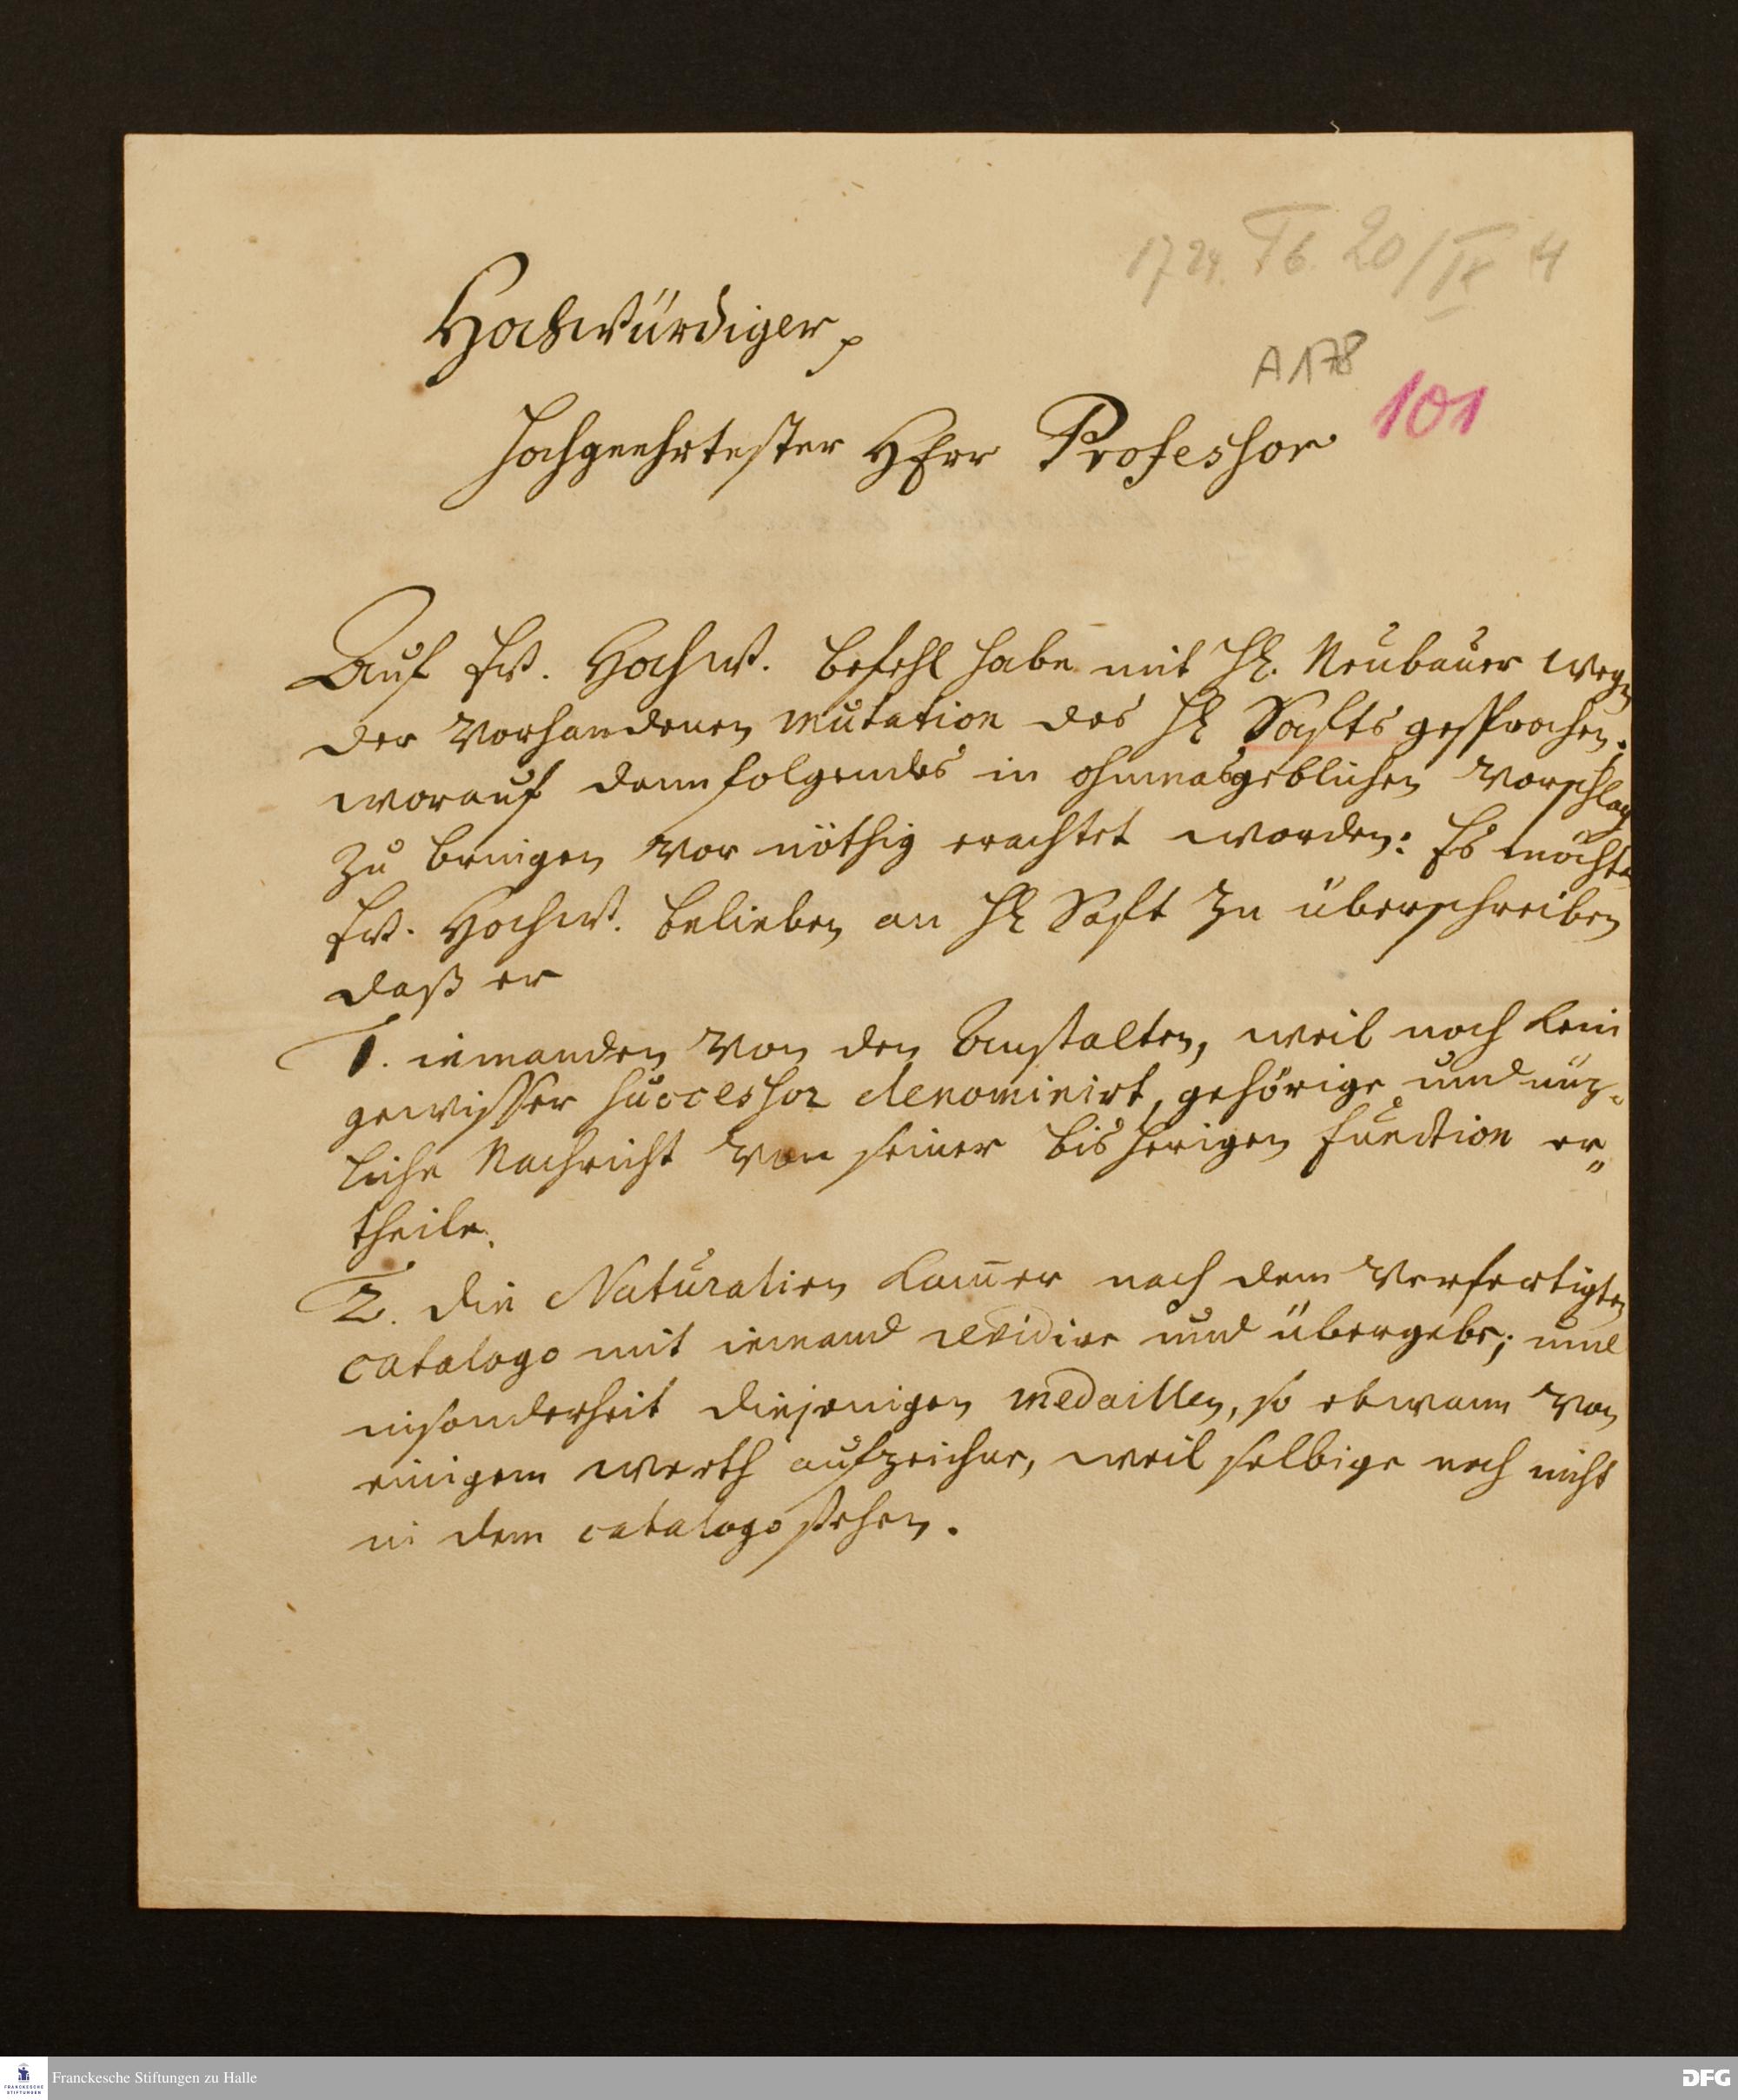 1724. Tb. 20/IX 4
Hochwürdiger p
A 178
101
Hochgeehrtester HErr Professor
Auf Ew. Hochw. befehl habe mit H. Neubauer wegen
der vorhandenen mutation des H Safts gesprochen.
worauf dann folgendes in ohnmasgeblichen Vorschlag
zu bringen vor nöthig erachtet worden: Es möchte
Ew. Hochw. belieben an H Saft zu überschreiben
daß er
1. iemanden von den Anstalten, weil noch kein
gewißer successor denominirt, gehörige und nüz-
liche Nachricht von seiner bisherigen function er„
theile.
2. die Naturalien Kam̄er nach dem verfertigten
catalogo mit iemand revidire und übergebe; und
insonderheit diejenigen medaillen, so etwann von
einigem werth aufzeichne, weil selbige noch nicht
in dem catalogo stehen.
Franckesche Stiftungen zu Halle
FRANCKESCHE
STIFTUNGEN
DFG